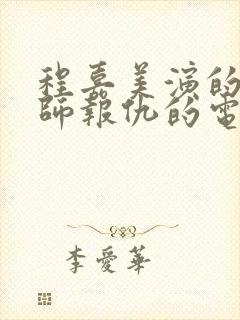 程嘉美演的
師報仇的電
李愛華